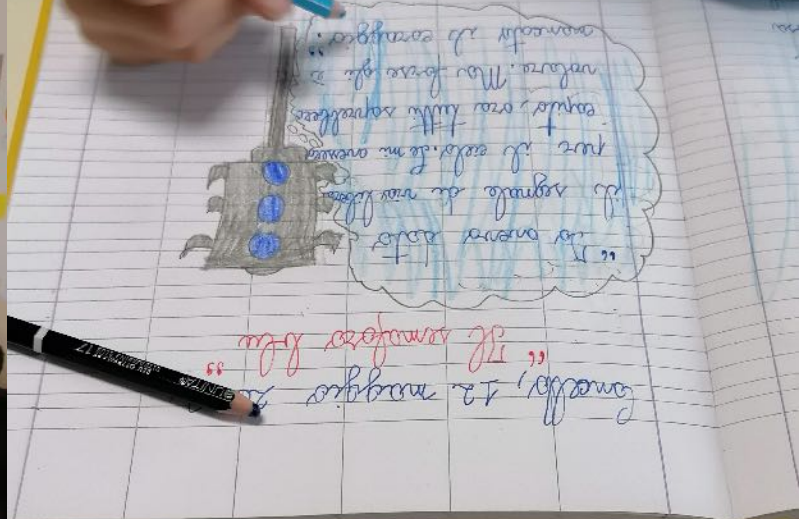 Cancello, 12 maggio 2
"Il semaforo blu"
"Io avevo dato
il segnale di via libera
per il cielo. Se mi avessero
capito, ora tutti saprebbero
volare. Ma forse gli è
mancato il coraggio."